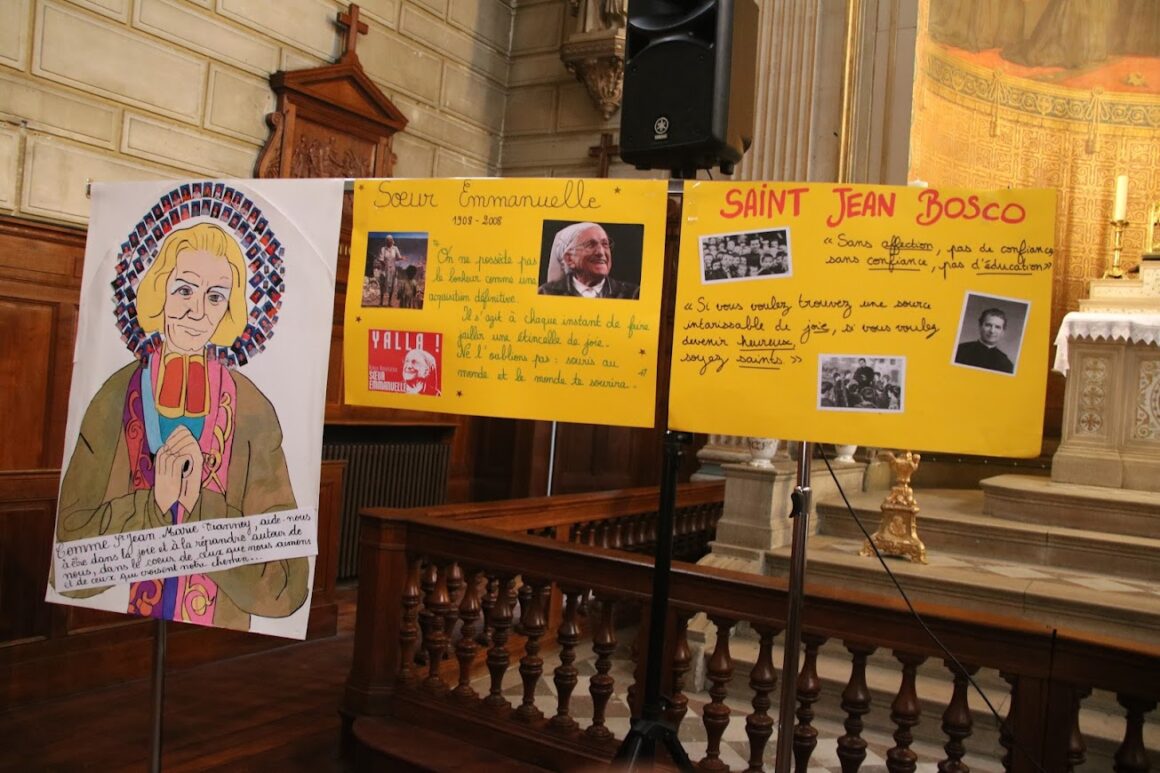 Comme St Jean Marie Vianney, aide-nous
à être dans la joie et à la répandre autour de
nous, dans le coeur de ceux que nous aimons
et de ceux qui croisent notre chemin...
Sœur Emmanuelle
1908 - 2008
"On ne possède pas
le bonheur comme une
acquisition définitive.
Il s'agit à chaque instant de faire
jaillir une étincelle de joie.
Ne l'oublions pas : souris au
monde et le monde te sourira."
YALLA !
SŒUR
EMMANUELLE
SAINT JEAN BOSCO
« Sans affection, pas de confiance,
sans confiance, pas d'éducation »
« Si vous voulez trouvez une source
intarissable de joie, si vous voulez
devenir heureux,
soyez saints »
YAMAHA